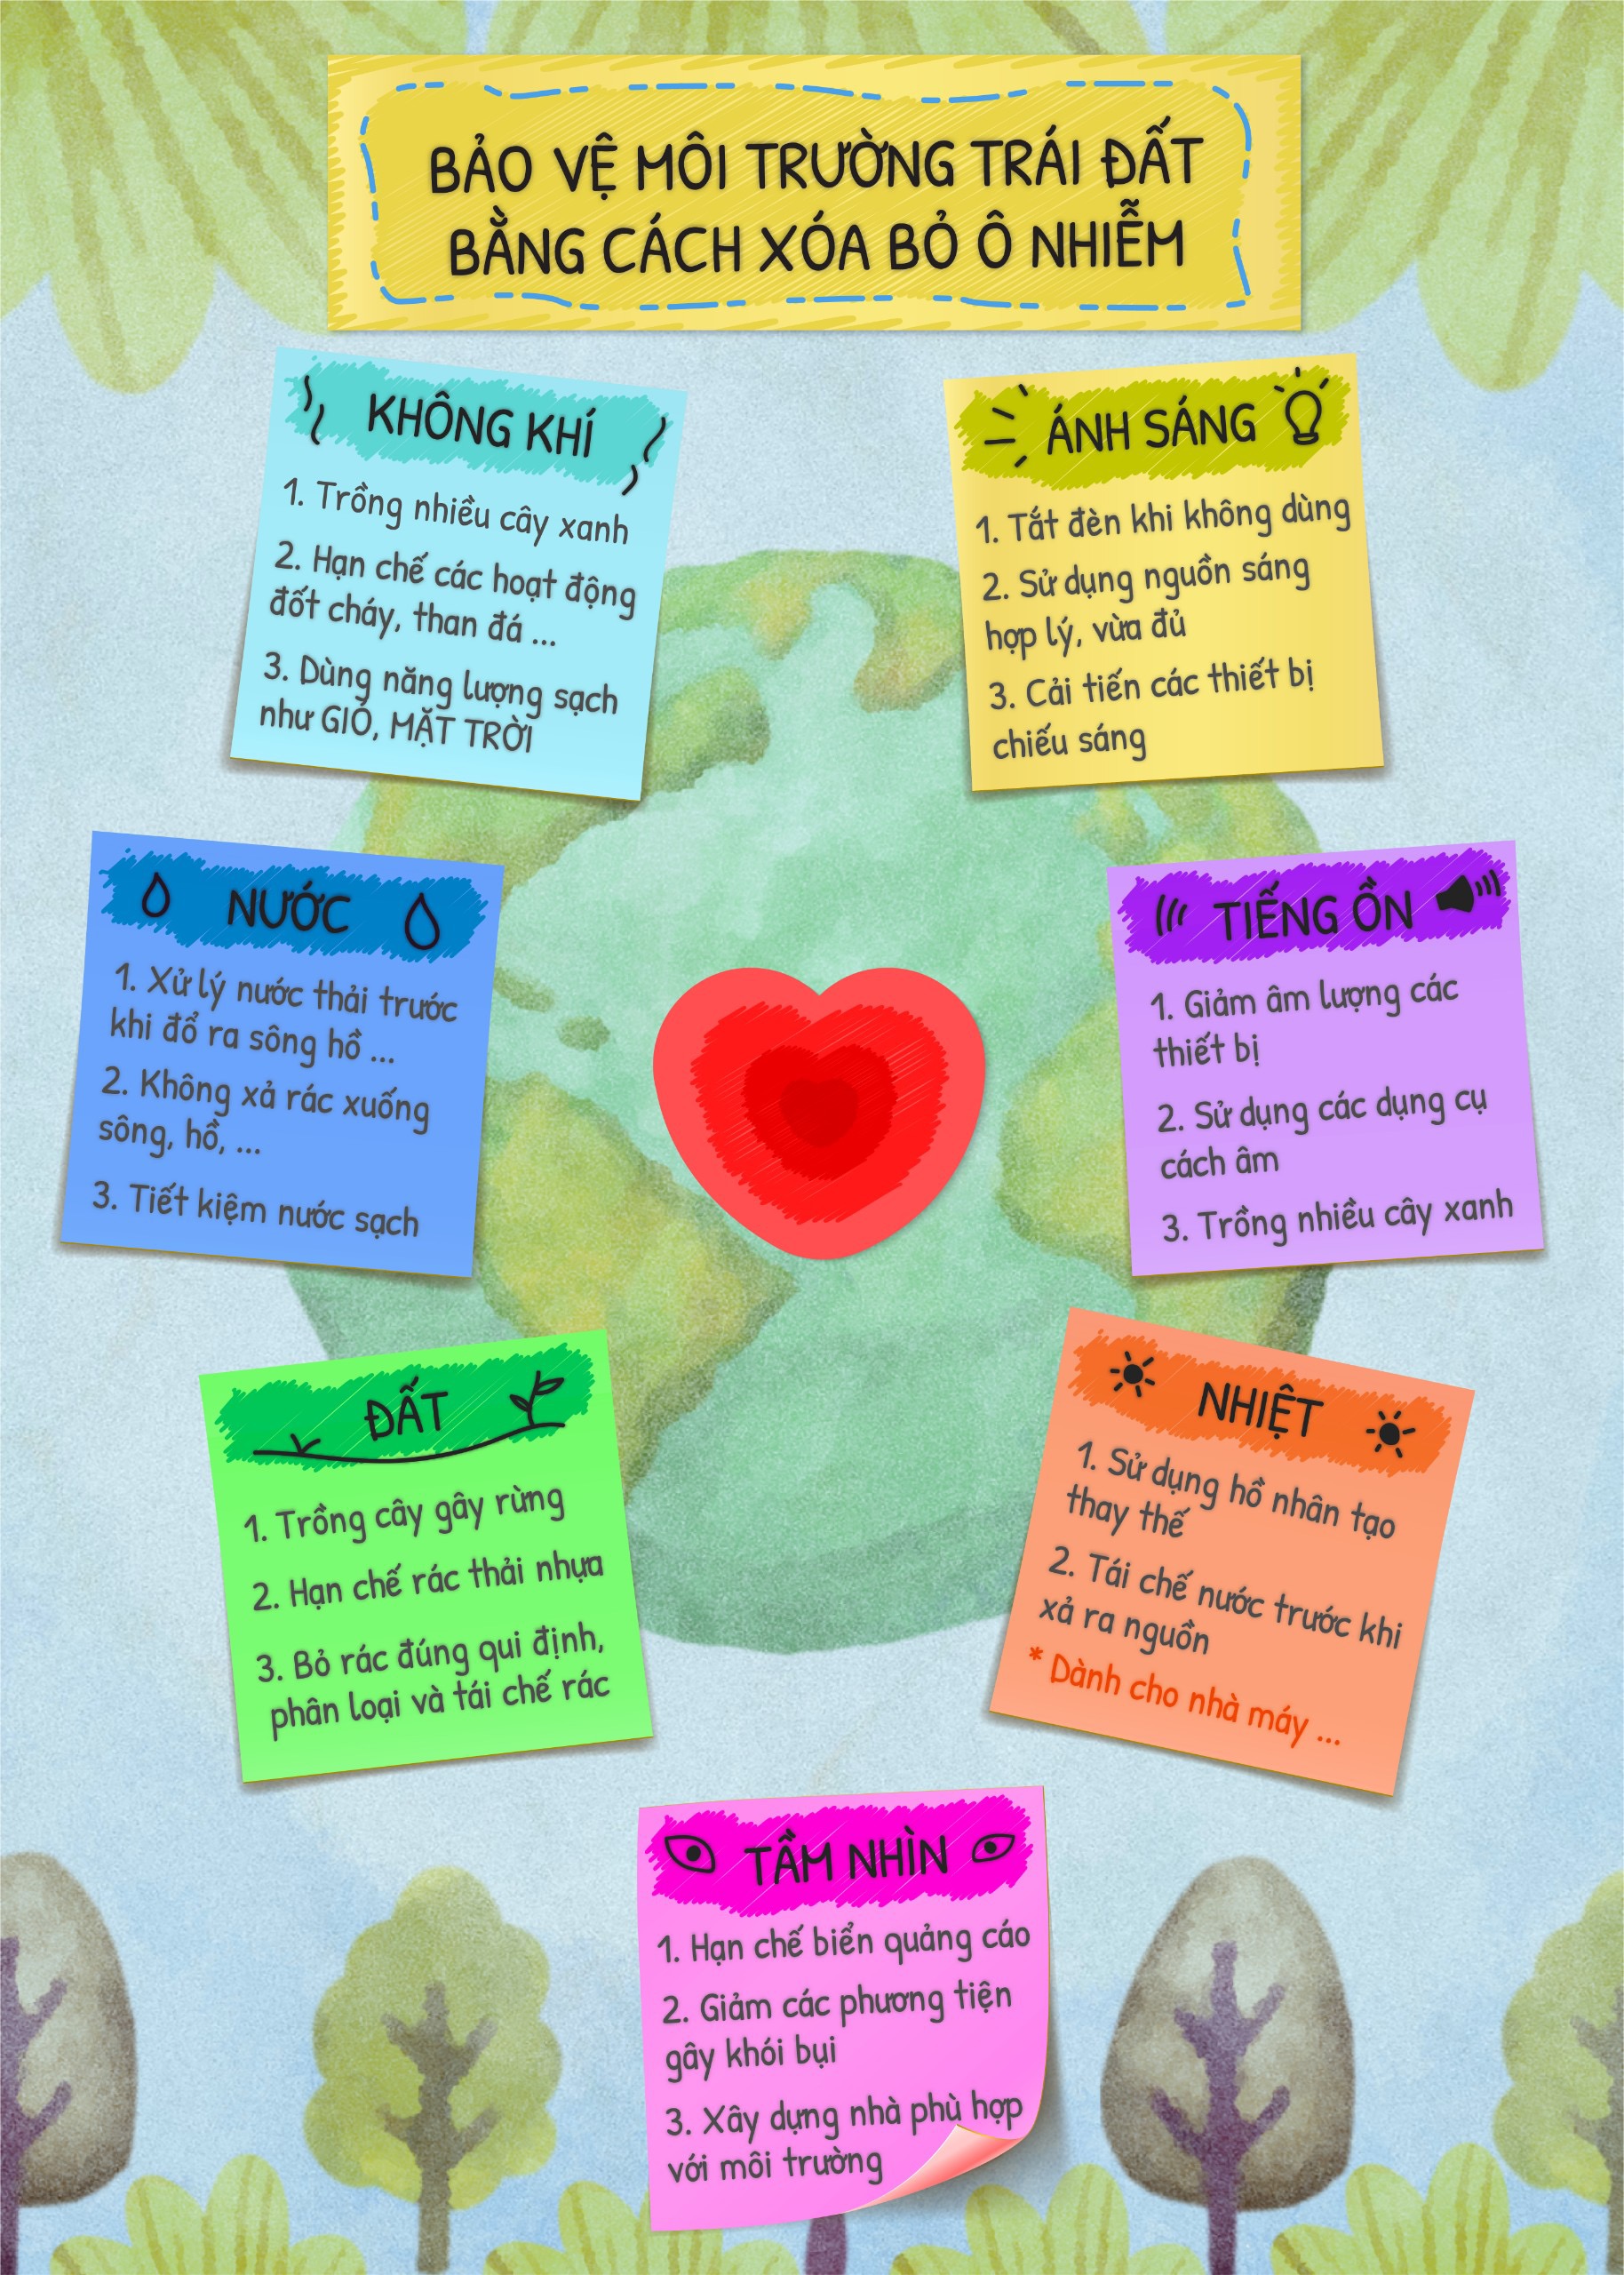 BẢO VỆ MÔI TRƯỜNG TRÁI ĐẤT
BẰNG CÁCH XÓA BỎ Ô NHIỄM
KHÔNG KHÍ
1. Trồng nhiều cây xanh
2. Hạn chế các hoạt động
đốt cháy, than đá ...
3. Dùng năng lượng sạch
như GIÓ, MẶT TRỜI
ÁNH SÁNG
1. Tắt đèn khi không dùng
2. Sử dụng nguồn sáng
hợp lý, vừa đủ
3. Cải tiến các thiết bị
chiếu sáng
NƯỚC
1. Xử lý nước thải trước
khi đổ ra sông hồ ...
2. Không xả rác xuống
sông, hồ, ...
3. Tiết kiệm nước sạch
TIẾNG ỒN
1. Giảm âm lượng các
thiết bị
2. Sử dụng các dụng cụ
cách âm
3. Trồng nhiều cây xanh
ĐẤT
1. Trồng cây gây rừng
2. Hạn chế rác thải nhựa
3. Bỏ rác đúng qui định,
phân loại và tái chế rác
NHIỆT
1. Sử dụng hồ nhân tạo
thay thế
2. Tái chế nước trước khi
xả ra nguồn
* Dành cho nhà máy ...
TẦM NHÌN
1. Hạn chế biển quảng cáo
2. Giảm các phương tiện
gây khói bụi
3. Xây dựng nhà phù hợp
với môi trường